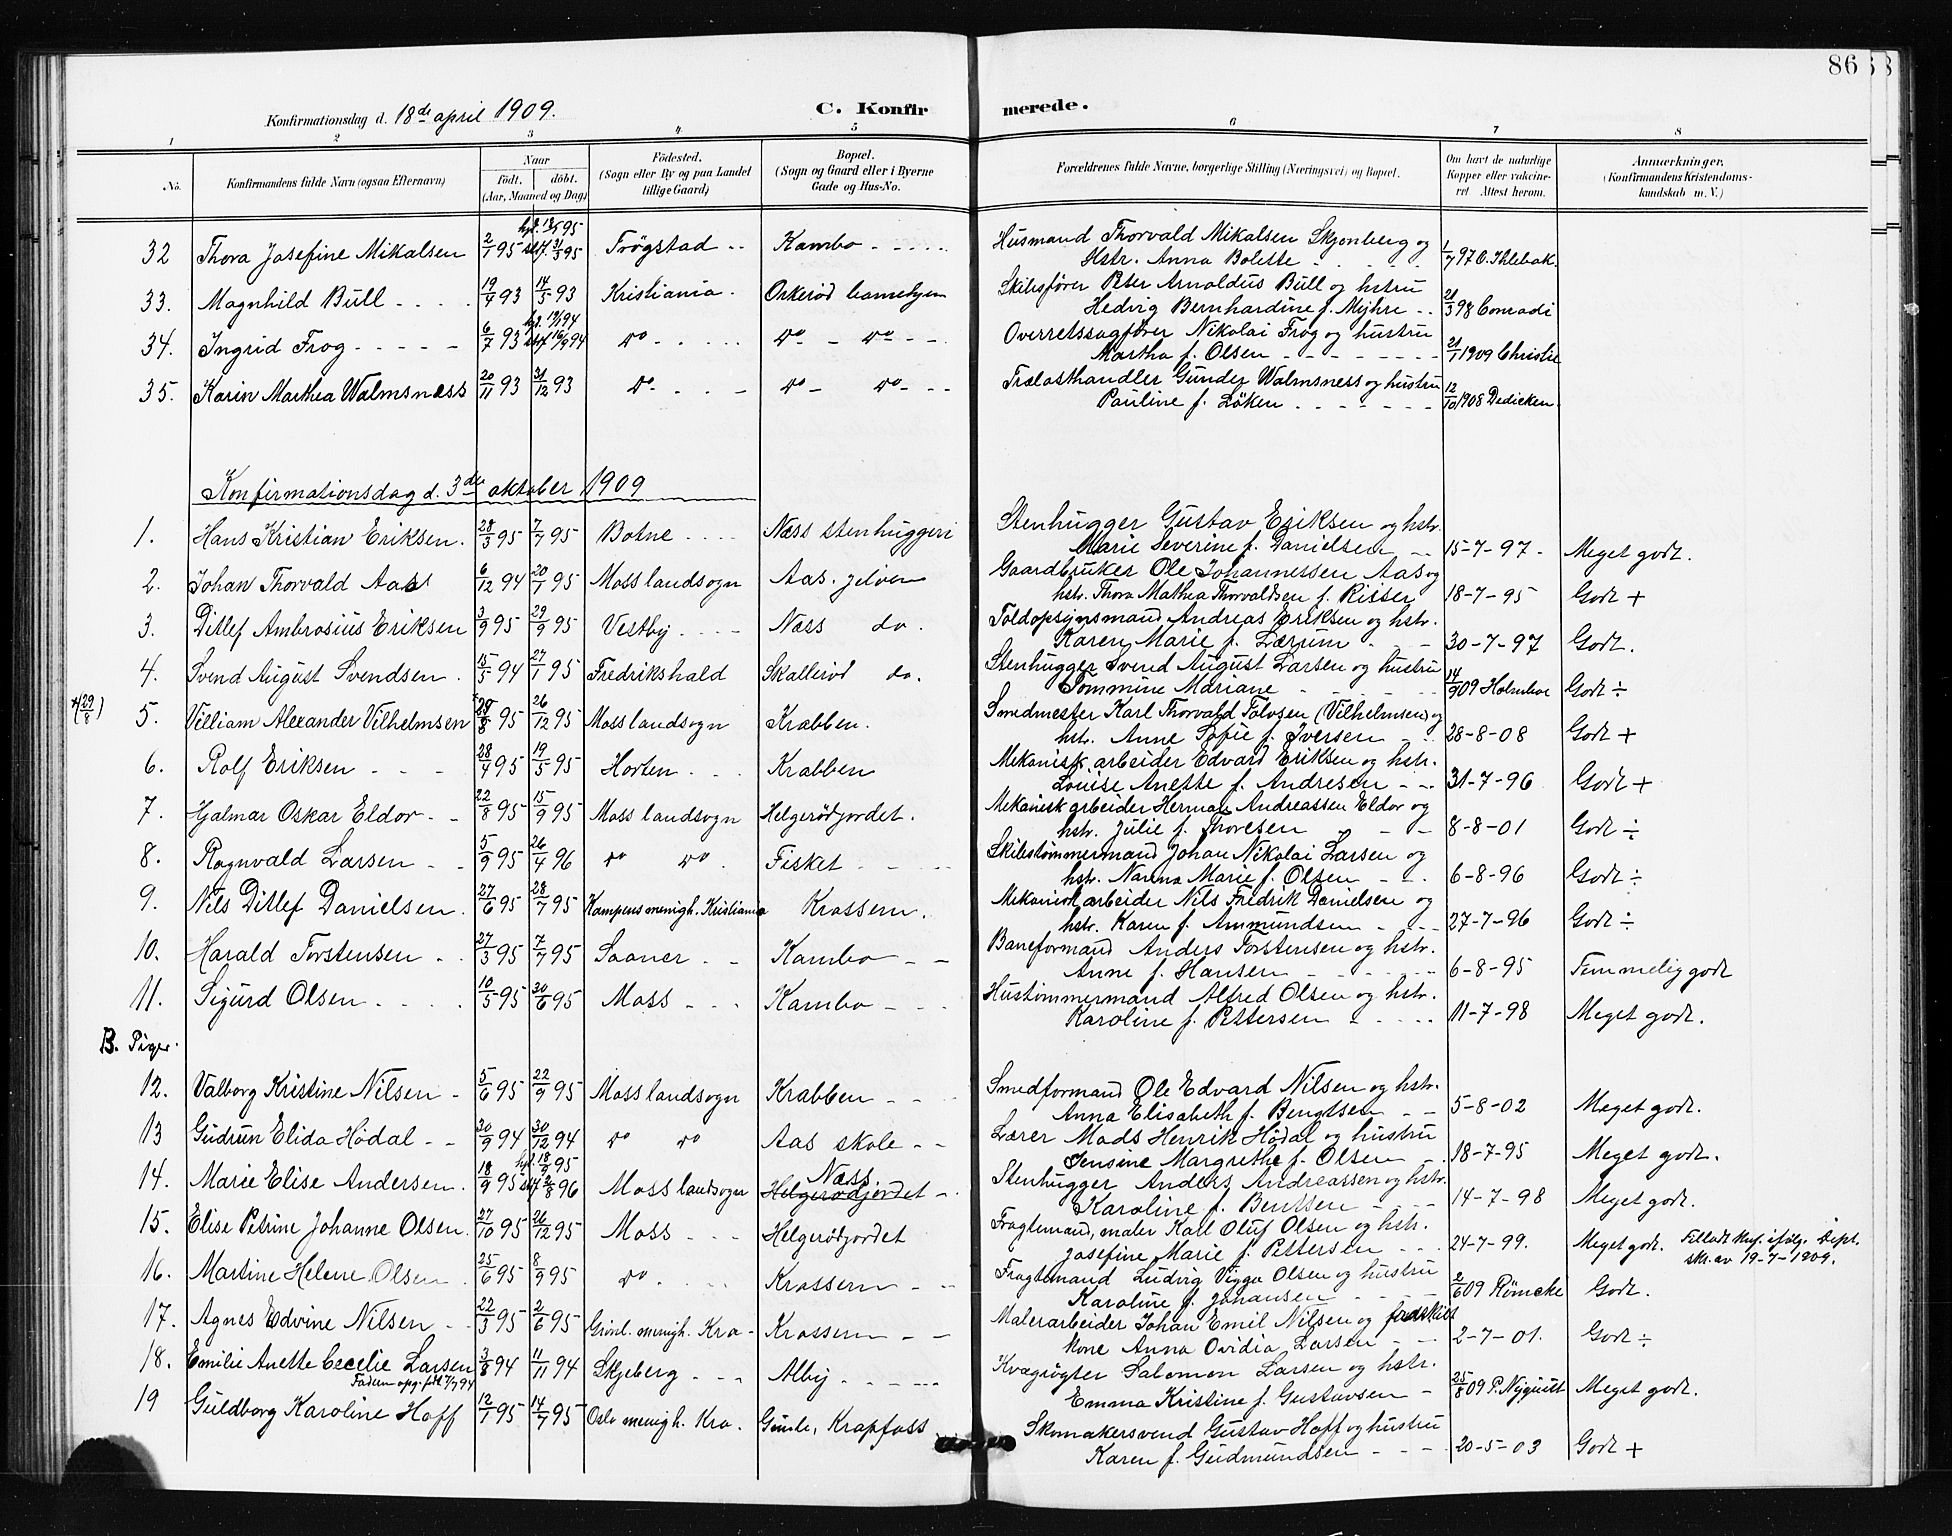 86
Konfirmationsdag d. 18de april 1909.
C. Konfirmerede.
1 2 3 4 5 6 7 8
No. Konfirmandens fulde Navn (ogsaa Efternavn) Naar Født. døbt. (Aar, Maaned og Dag) Fødested. (Sogn eller By og paa Landet tillige Gaard) Bopæl. (Sogn og Gaard eller i Byerne Gade og Hus-No. Forældrenes fulde Navne, borgerlige Stilling (Næringsvei) og Bopæl. Om havt de naturlige Kopper eller vakcineret Attest herom. Anmærkninger, (Konfirmandens Kristendomskundskab m. V.)
32 Thora Josefine Mikalsen 2/1 95 hjd. 12/1 95 stdf. 31/3 95 Trøgstad Kambo Husmand Thorvald Mikalsen Skjønberg og Hstr. Anna Bolette 1/7 97 O. Ihlebæk.
33. Magnhild Bull 19/4 93 14/5 93 Kristiania Orkerød hamebyen Skibsfører Peter Arnoldus Bull og hstru Hedvig Bernhardine f. Myhre 21/3 98 Conradi
34. Ingrid Frog 6/7 93 stdf 16/9 94 do do do Overretssagfører Nikolai Frog og hustru Martha f. Olsen 21/1 1909 Christie
35. Karin Marthea Walmsnæss 20/11 93 31/12 93 do do do Trælasthandler Gunder Walmsness og hustru Pauline f. Løken 12/10 1908 Dedicken.
Konfirmationsdag d. 3die oktober 1909
1. Hans Kristian Eriksen. 28/3 95 7/7 95 Botne Næss stenhuggeri Stenhugger Gustav Eriksen og hstr. Marie Severine f. Danielsen 15-7-97 Meget godt.
2. Johan Thorvald Aas 6/12 94 20/1 95 Moss landsogn Aas. jeløen Gaardbruker Ole Johannessen Aas og hstr. Thora Mathea Thorvaldsen f. Risser 18-7-95 Godt +
3. Ditlef Ambrosius Eriksen 3/9 95 29/9 95 Vestby Næss do. Toldopsynsmand Andreas Eriksen og hstr. Karen Marie f. Lærum 30-7-97 Godt.
4. Svend August Svendsen 15/5 94 27/1 95 Fredrikshald Skallerød do. Stenhugger Svend August Larsen og hustru Tommine Mariane 14/9 09 Holmboe Godt ÷
*(29/8) 5. Villiam Alexander Vilhelmsen 29/8 95 26/12 95 Moss landsogn Krabben. Smedmester Karl Thorvald Tolvsen (Vilhelmsen) og hstr. Anne Sofie f. Iversen 28-8-08 Godt +
6. Rolf Eriksen 28/4 95 19/5 95 Horten Krabben Mekanisk arbeider Edvard Eriksen og hstr. Louise Anette f. Andresen 31-7-96 Godt +
7. Hjalmar Oskar Eldor 22/8 95 15/9 95 Moss landsogn Helgerødjordet. Mekanisk arbeider Herman Andreassen Eldor og hstr. Julie f. Thoresen 8-8-01 Godt ÷
8. Ragnvald Larsen 5/9 95 26/4 96 do do Fisket Skibstømmermand Johan Nikolai Larsen og hstr. Nanna Marie f. Olsen 6-8-96 Godt ÷
9. Nils Ditlef Danielsen. 27/6 95 28/7 95 Kampens menigh. Kristiania Krossern. Mekanisk arbeider Nils Fredrik Danielsen og hstr. Karen f. Ammundsen 27-7-96 Godt ÷
10. Harald Torstensen 27/3 95 7/7 95 Saaner Kambo Baneformand Anders Torstensen og hstr. Anne f. Hansen 6-8-95 Temmelig godt
11. Sigurd Olsen 10/5 95 30/6 95 Moss Kambo Hustømmermand Alfred Olsen og hstr. Karoline f. Pettersen 11-7-98 Meget godt.
B. Piger.
12. Valborg Kristine Nilsen 5/6 95 22/9 95 Moss landsogn Krabben Smedformand Ole Edvard Nilsen og hstr. Anna Elisabeth f. Bengtsen 5-8-02 Meget godt.
13 Gudrun Elida Hødal 30/9 94 30/12 94 do do Aas skole Lærer Mads Henrik Hødal og hustru Jensine Margrethe f. Olsen 18-7-95 Meget godt.
14. Marie Elise Andersen. 18/9 95 hjd. 18/9 95 stdf 2/8 96 Moss landsogn Næss Helgerødjordet Stenhugger Anders Andreassen og hstr. Karoline f. Bentsen 14-7-98 Meget godt.
15. Elise Petrine Johanne Olsen. 27/10 95 26/12 95 Moss Helgerødjordet Fragtemand, maler Karl Oluf Olsen og hstr. Josefine Marie f. Pettersen 24-7-99. Meget godt. Tilladt konf. ifølge Dept. skr. av 19-7-1909.
16. Martine Helene Olsen 25/6 95 8/9 95 do Krossern Fragtemand Ludvig Viggo Olsen og hustru Karoline f. Johansen 2/6 09 Römcke Godt.
17. Agnes Edvine Nilsen 22/3 95 2/6 95 Grønl. menigh. Kra. Krossern Malerarbeider Johan Emil Nilsen og fraskilt kone Anna Ovidia Larsen 2-7-01. Godt ÷
18. Emilie Anette Cecelie Larsen 3/8 94 11/11 94 Skjeberg Alby Kvægrøgter Salomon Larsen og hstr. Emma Kristine f. Gustavsen 25/8 09 P. Nyquist Meget godt.
Faderen opg. født 7/7 94
19 Guldborg Karoline Hoff 12/1 95 14/7 95 Oslo menigh. Kra. Gimle, Krapfoss Skomakersvend Gustav Hoff og hustru Karen f. Gudmundsen 20-5-03 Godt +